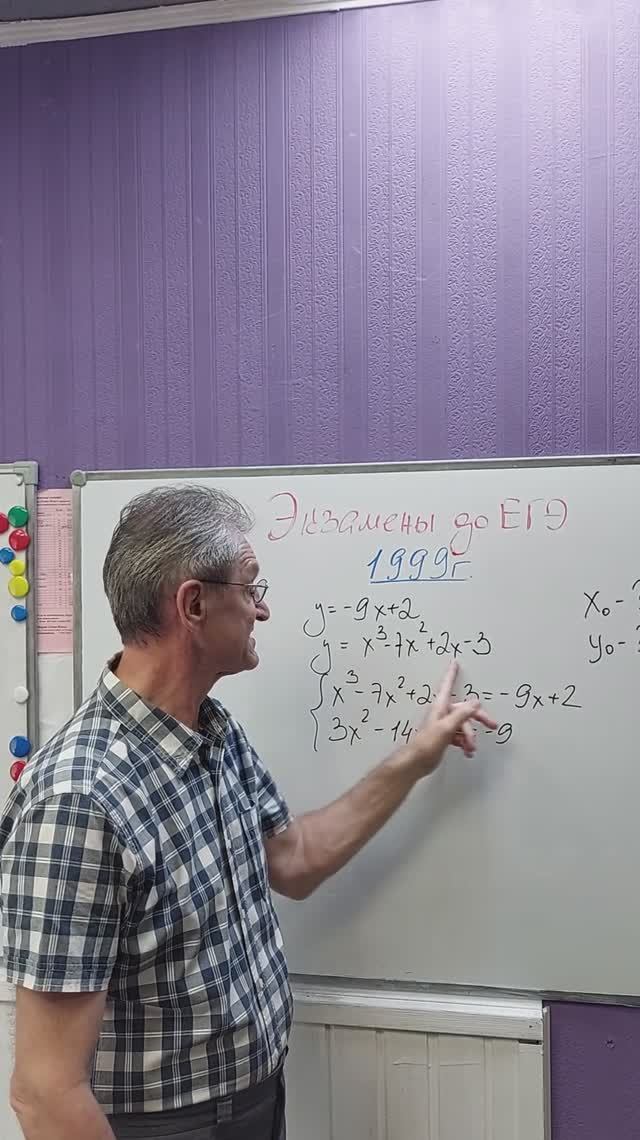 Экзамены до ЕГЭ
1999г.
y = -9x+2
y = x³-7x²+2x-3
x³-7x²+2 -3 = -9x+2
3x²-14 = -9
x₀ - ?
y₀ - ?